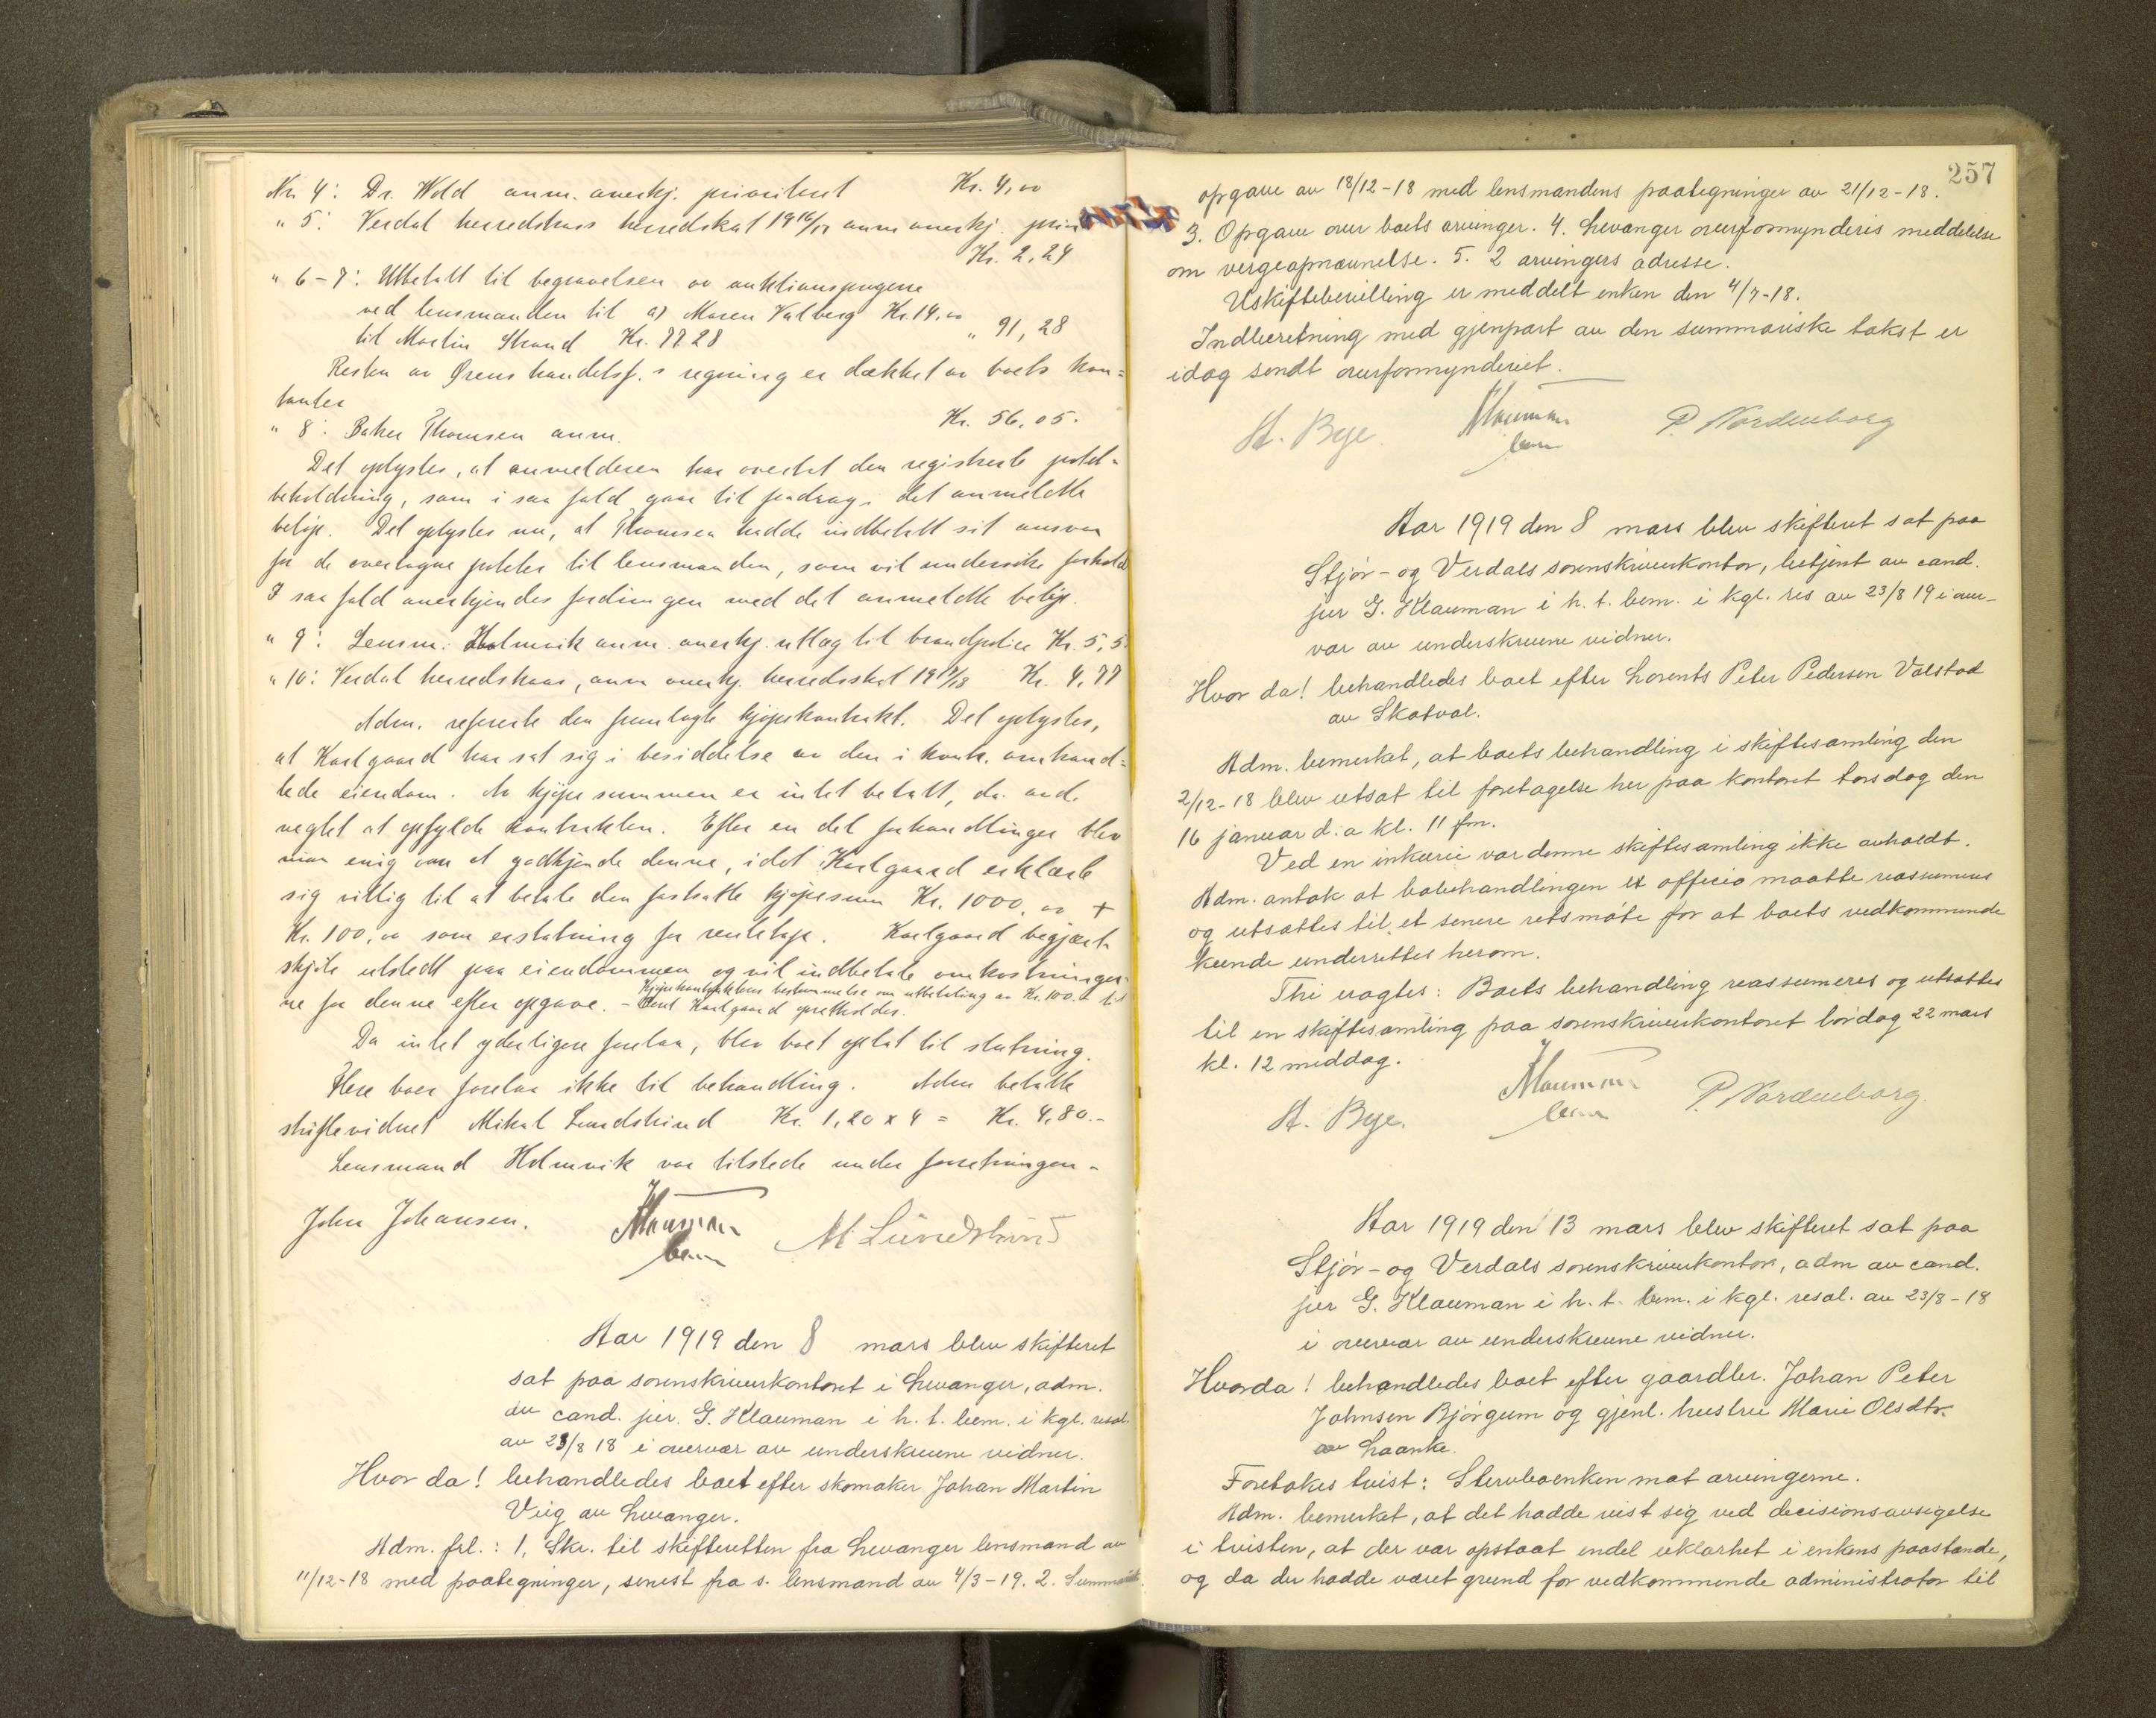 Nr. 4: Dr. Wold anm. anerkj. prioritert Kr. 4,00
" 5: Verdal herredskass herredskat 1916/17 anm anerkj. prior
Kr. 2,24
" 6-7: Utbetalt til begravelsen av auktionspengene
ved lensmanden til a) Maren Valberg Kr. 14.00
til Martin Strand Kr. 77.28 " 91,28
Resten av Ørens handelsf.s regning er dækket av boets kon=
tanter Kr. 56,05.
" 8: Baker Thomsen anm.
Det oplystes, at anmelderen har overtat den registrerte
beholdning, som i saa fald gaar til fradrag i det anmeldte
beløp. Det oplystes nu, at Thomsen hadde indbetalt sit ansvar
for de overtagne til lensmanden, som vil undersøke forhold
I saa fald anerkjendes fordringen med det anmeldte beløp.
" 9: Lensm. Holmvik anm. anerkj. utlæg til brandpolice Kr. 5,5
" 10: Verdal herredskass, anm anerkj. herredsskat 1917/18 Kr. 4,77
Adm. refererte den fremlagte kjøpekontrakt. Det oplystes,
at Karlgaard har sat sig i besiddelse av den i kontr. omhand=
lede eiendom. Av kjøpesummen er intet betalt, da avd.
neglet at opfylde kontrakten. Efter en del forhandlinger blev
man enig om at godkjende denne, idet Karlgaard erklærte
sig villig til at betale den fastsatte kjøpesum Kr. 1000.00 +
Kr. 100,00 som erstatning for rentetap. Karlgaard begjærte
skjøte utstedt paa eiendommen og vil indbetale omkostninger
ne for denne efter opgave. - Kjøpekontraktens bestemmelse om utbetaling av Kr. 100.00 til
Karlgaard opretholdes.
Da intet yderligere forelaa, blev boet optat til slutning.
Flere boer forelaa ikke til behandling. Adm betalte
skiftevidnet Mikal Lundskind Kr. 1,20 x 4 = Kr. 4,80.-
Lensmand Holmvik var tilstede under forretningen -
John Johansen. Klauman bem M Lundskind
Aar 1919 den 8 mars blev skifteret
sat paa sorenskriverkontoret i Levanger, adm.
av cand. jur. G. Klauman i h. t. bem. i kgl. resol.
av 23/8 18 i overvær av underskrevne vidner.
Hvor da! behandledes boet efter skomaker Johan Martin
Veig av Levanger.
Adm. frl.: 1, Skr. til skifteretten fra Levanger lensmand av
11/12-18 med paategninger, senest fra s. lensmand av 4/3-19. 2. Summarisk
257
opgave av 18/12-18 med lensmandens paategninger av 21/12-18.
3. Opgave over boets arvinger. 4. Levanger overformynderis meddelelse
om vergeopnævnelse. 5. 2 arvingers adresse.
Uskiftebevilling er meddelt enken den 4/7-18.
Indberetning med gjenpart av den summariske takst er
idag sendt overformynderiet.
A. Bye. Klauman bem P. Nordenborg
Aar 1919 den 8 mars blev skifteret sat paa
Stjør- og Verdals sorenskriverkontor, betjent av cand.
jur G. Klauman i h. t. bem. i kgl. res av 23/8 19 i over-
vær av underskrevne vidner.
Hvor da! behandledes boet efter Lorents Peter Pedersen Valstad
av Skatval.
Adm. bemerket, at boets behandling i skiftesamling den
2/12-18 blev utsat til foretagelse her paa kontoret torsdag den
16 januar d. a kl. 11 fm.
Ved en inkurie var denne skiftesamling ikke avholdt.
Adm. antok at bobehandlingen ex officio maatte reassumeres
og utsættes til et senere retsmøte for at boets vedkommende
kunde underrettes herom.
Thi eragtes: Boets behandling reassumeres og utsættes
til en skiftesamling paa sorenskriverkontoret lørdag 22 mars
kl. 12 middag.
A. Bye. Klauman bem P. Nordenborg.
Aar 1919 den 13 mars blev skifteret sat paa
Stjør- og Verdals sorenskriverkontor, adm av cand.
jur G. Klauman i h. t. bem. i kgl. resol. av 23/8-18
i overvær av underskrevne vidner.
Hvorda! behandledes boet efter gaardbr. Johan Peter
Johnsen Bjørgum og gjenl. hustru Marie Olsdtr.
av Laanke.
Foretokes tvist: Stervboenken mot arvingerne.
Adm. bemerket, at det hadde vist sig ved decisionsavsigelse
i tvisten, at der var opstaat endel uklarhet i enkens paastande,
og da der hadde været grund for vedkommende administrator til